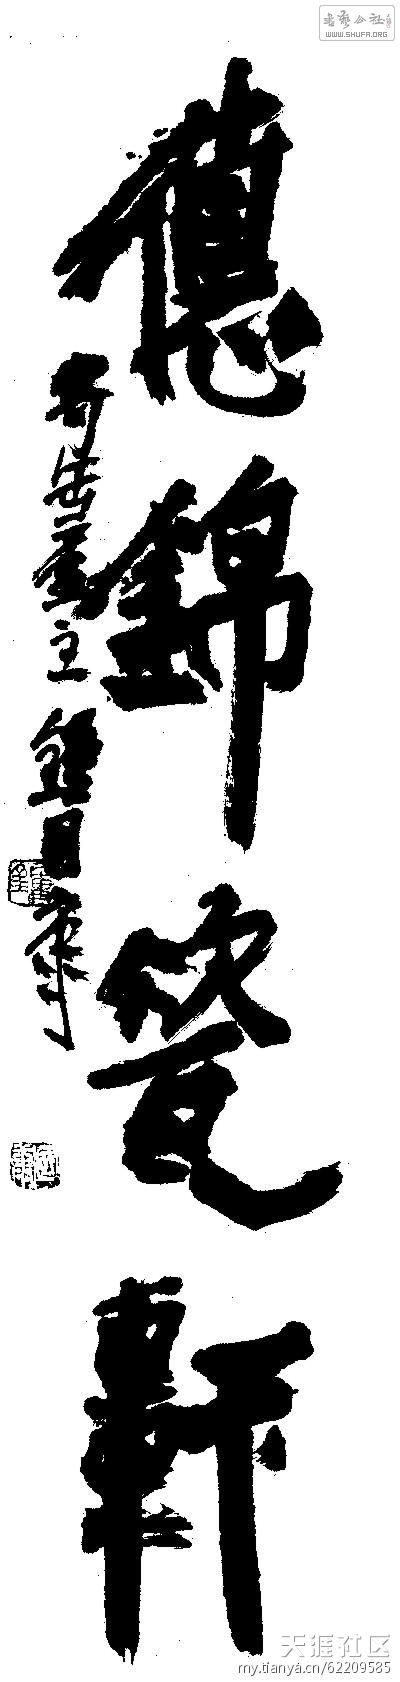 书艺公社
WWW.SHUFA.ORG
德錦瓷軒
奇缶齋主鍾国康
天涯社区
my.tianya.cn/62209585